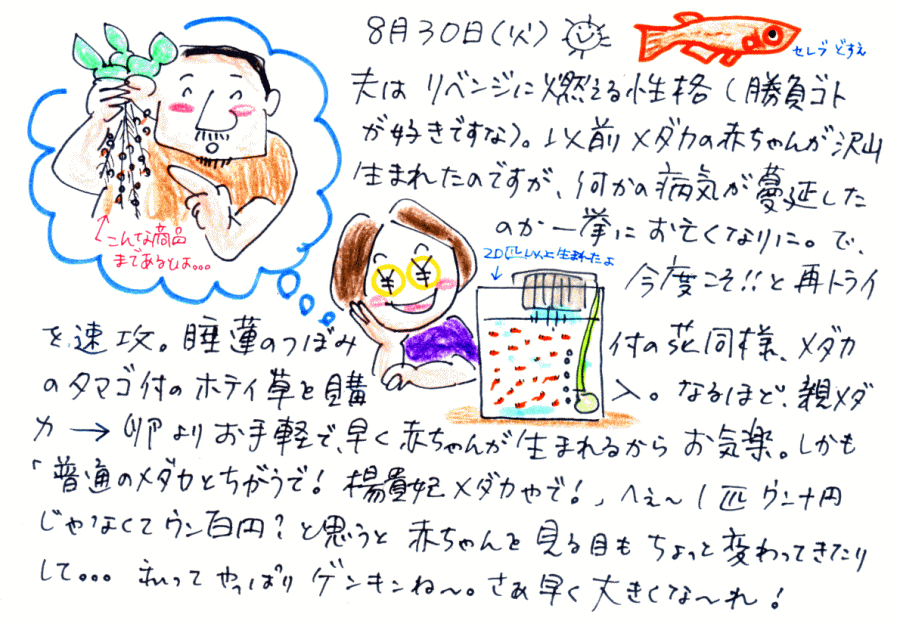 8月30日(火)
セレブ どすえ
夫は リベンジに燃える性格（勝負ゴト
が好きですな）。以前 メダカの赤ちゃんが沢山
生まれたのですが、何かの病気が蔓延した
のか一挙に お亡くなりに。で、
今度こそ!!と再トライ
を速攻。睡蓮のつぼみ付の花同様、メダカ
のタマゴ付のホテイ草を購入。なるほど、親メダ
カ → 卵よりお手軽で、早く赤ちゃんが生まれるからお気楽。しかも
「普通のメダカとちがうで！楊貴妃メダカやで！」へぇ〜1匹ウン十円
じゃなくてウン百円？と思うと赤ちゃんを見る目もちょっと変わってきたり
して... 私ってやっぱりゲンキンね〜。さあ早く大きくな〜れ！
こんな商品
まであるとは...
20匹以上生まれたよ
¥ ¥